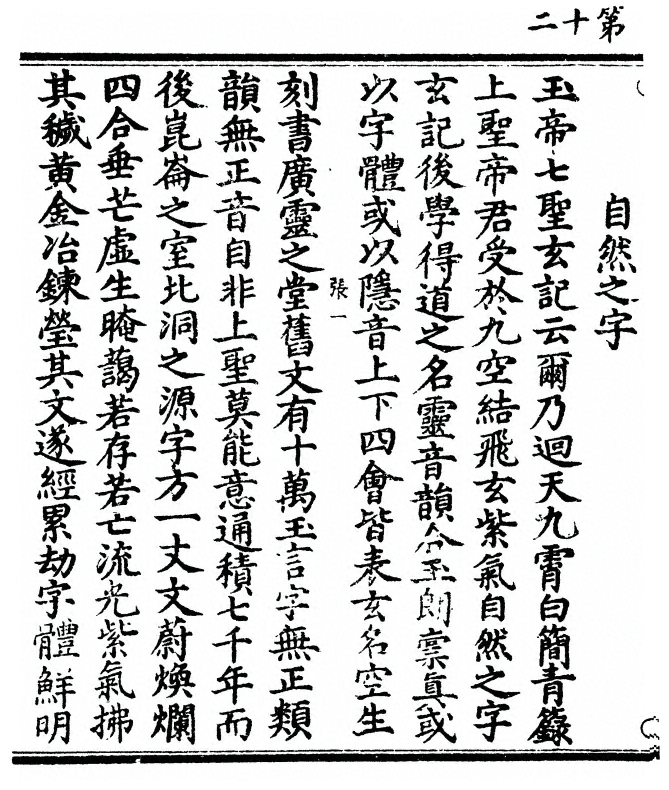 第十二
自然之字
玉帝七聖玄記云爾乃迴天九霄白簡青籙
上聖帝君受於九空結飛玄紫氣自然之字
玄記後學得道之名靈音韻合玉朗稟真或
以字體或以隱音上下四會皆表玄名空生
張一
刻書廣靈之堂舊文有十萬玉言字無正類
韻無正音自非上聖莫能意通積七千年而
後崑崙之室北洞之源字方一丈文蔚煥爛
四合垂芒虛生晻藹若存若亡流光紫氣拂
其穢黃金冶鍊瑩其文遂經累劫字體鮮明